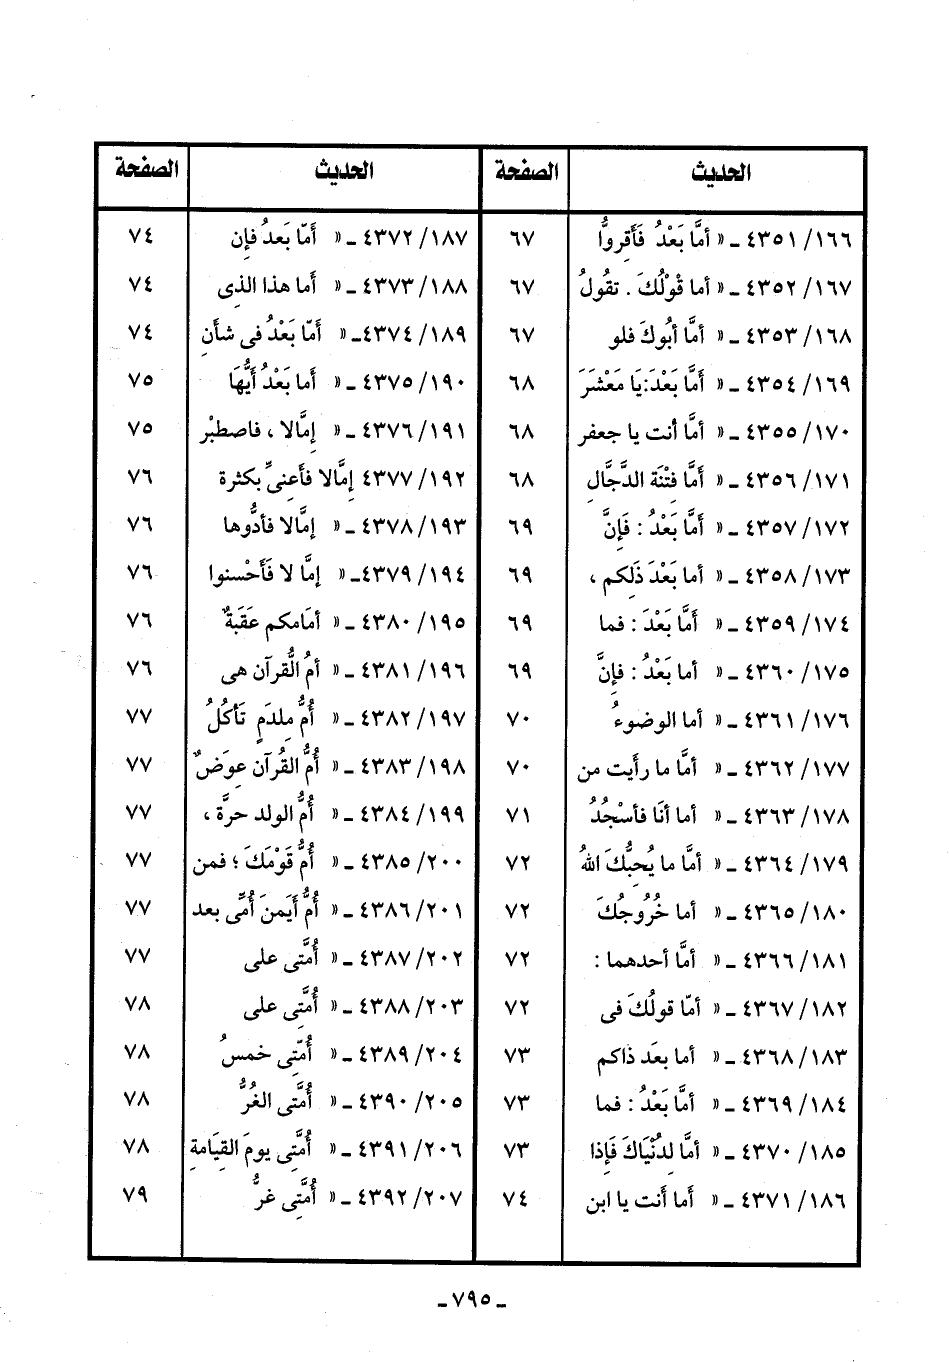 الحديث الصفحة الحديث الصفحة
١٦٦/٤٣٥١ ـ « أمَّا بَعْدُ فَأَقِروُّا ٦٧
١٦٧/٤٣٥٢ ـ « أما قوْلُكَ . تقُولُ ٦٧
١٦٨/٤٣٥٣ ـ « أمَّا أبُوكَ فلو ٦٧
١٦٩/٤٣٥٤ ـ « أَمَّا بَعْدَ:يَا مَعْشَرَ ٦٨
١٧٠/٤٣٥٥ ـ « أمَّا أنت يا جعفر ٦٨
١٧١/٤٣٥٦ ـ « أَمَّا فِتْنَة الدَّجَّالِ ٦٨
١٧٢/٤٣٥٧ ـ « أمَّا بَعْدُ : فَإِنَّ ٦٩
١٧٣/٤٣٥٨ ـ « أما بَعْدَ ذَلِكم ، ٦٩
١٧٤/٤٣٥٩ ـ « أَمَّا بَعْدَ : فما ٦٩
١٧٥/٤٣٦٠ ـ « أما بَعْدُ : فإِنَّ ٦٩
١٧٦/٤٣٦١ ـ « أما الوضوءُ ٧٠
١٧٧/٤٣٦٢ ـ « أمَّا ما رأَيت من ٧٠
١٧٨/٤٣٦٣ ـ « أما أنَا فأسْجُدُ ٧١
١٧٩/٤٣٦٤ ـ « أمَّا ما يُحبُّكَ اللهُ ٧٢
١٨٠/٤٣٦٥ ـ « أما خُرُوجُكَ ٧٢
١٨١/٤٣٦٦ ـ « أمَّا أحدهما : ٧٢
١٨٢/٤٣٦٧ ـ « أمّا قولُكَ فى ٧٢
١٨٣/٤٣٦٨ ـ « أما بعَد ذاكم ٧٣
١٨٤/٤٣٦٩ ـ « أمَّا بَعْدُ : فما ٧٣
١٨٥/٤٣٧٠ ـ « أمَّا لِدُنْيَاكَ فَإِذا ٧٣
١٨٦/٤٣٧١ ـ « أَما أَنت يا ابن ٧٤
١٨٧/٤٣٧٢ ـ « أَمّا بَعدُ فإِن ٧٤
١٨٨/٤٣٧٣ ـ « أَما هذا الذى ٧٤
١٨٩/٤٣٧٤ـ « أَمّا بَعْدُ فى شأَنِ ٧٤
١٩٠/٤٣٧٥ ـ « أما بَعْدُ أَيُّهَا ٧٥
١٩١/٤٣٧٦ ـ « إِمَّالا ، فاصطبْر ٧٥
١٩٢/٤٣٧٧ إمَّالا فأَعِنىِّ بكثرة ٧٦
١٩٣/٤٣٧٨ ـ « إمَّالا فأدُّوها ٧٦
١٩٤/٤٣٧٩ـ « إمَّا لا فَأَحْسنوا ٧٦
١٩٥/٤٣٨٠ ـ « أمَامكم عَقَبَةٌ ٧٦
١٩٦/٤٣٨١ ـ « أمُ الُّقرآن هى ٧٦
١٩٧/٤٣٨٢ ـ « أُمُّ مِلدَمٍ تَأكُلُ ٧٧
١٩٨/٤٣٨٣ ـ « أُمُّ القُرآن عِوَضٌ ٧٧
١٩٩/٤٣٨٤ ـ « أُمُّ الولد حرَّة ، ٧٧
٢٠٠/٤٣٨٥ ـ « أُمُّ قَوْمَكَ ؛ فمن ٧٧
٢٠١/٤٣٨٦ ـ « أُمُّ أَيَمنَ أُمِّى بعد ٧٧
٢٠٢/٤٣٨٧ ـ « أُمَّتِى على ٧٧
٢٠٣/٤٣٨٨ ـ « أُمَّتِى على ٧٨
٢٠٤/٤٣٨٩ ـ « أُمّتِى خمسُ ٧٨
٢٠٥/٤٣٩٠ ـ « أُمَّتِى الغُرُّ ٧٨
٢٠٦/٤٣٩١ ـ « أُمَّتِى يومَ القِيَامةِ ٧٨
٢٠٧/٤٣٩٢ ـ « أُمَّتِى غرُّ ٧٩
ـ ٧٩٥ ـ